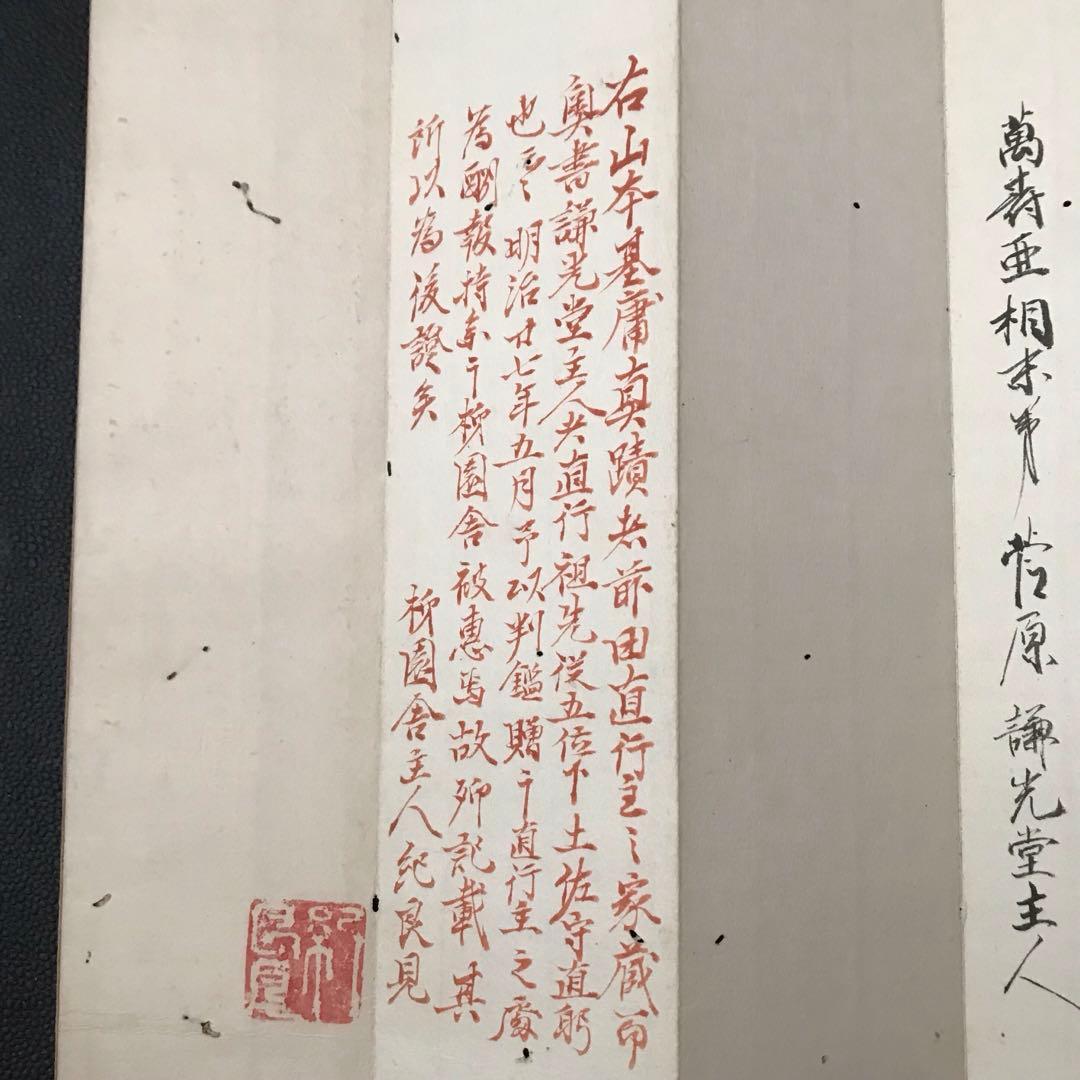 萬壽亜相末弟 菅原 謙光堂主人
右山本基庸真蹟者前田直行主之家蔵而
奥書謙光堂主人者直行祖先従五位下土佐守直躬
也云々 明治廿七年五月予以判鑑贈于直行主之處
為酬報持来于栁園舎被恵焉故卯記載其
所以為後證矣
栁園舎主人紀良見
紀良見